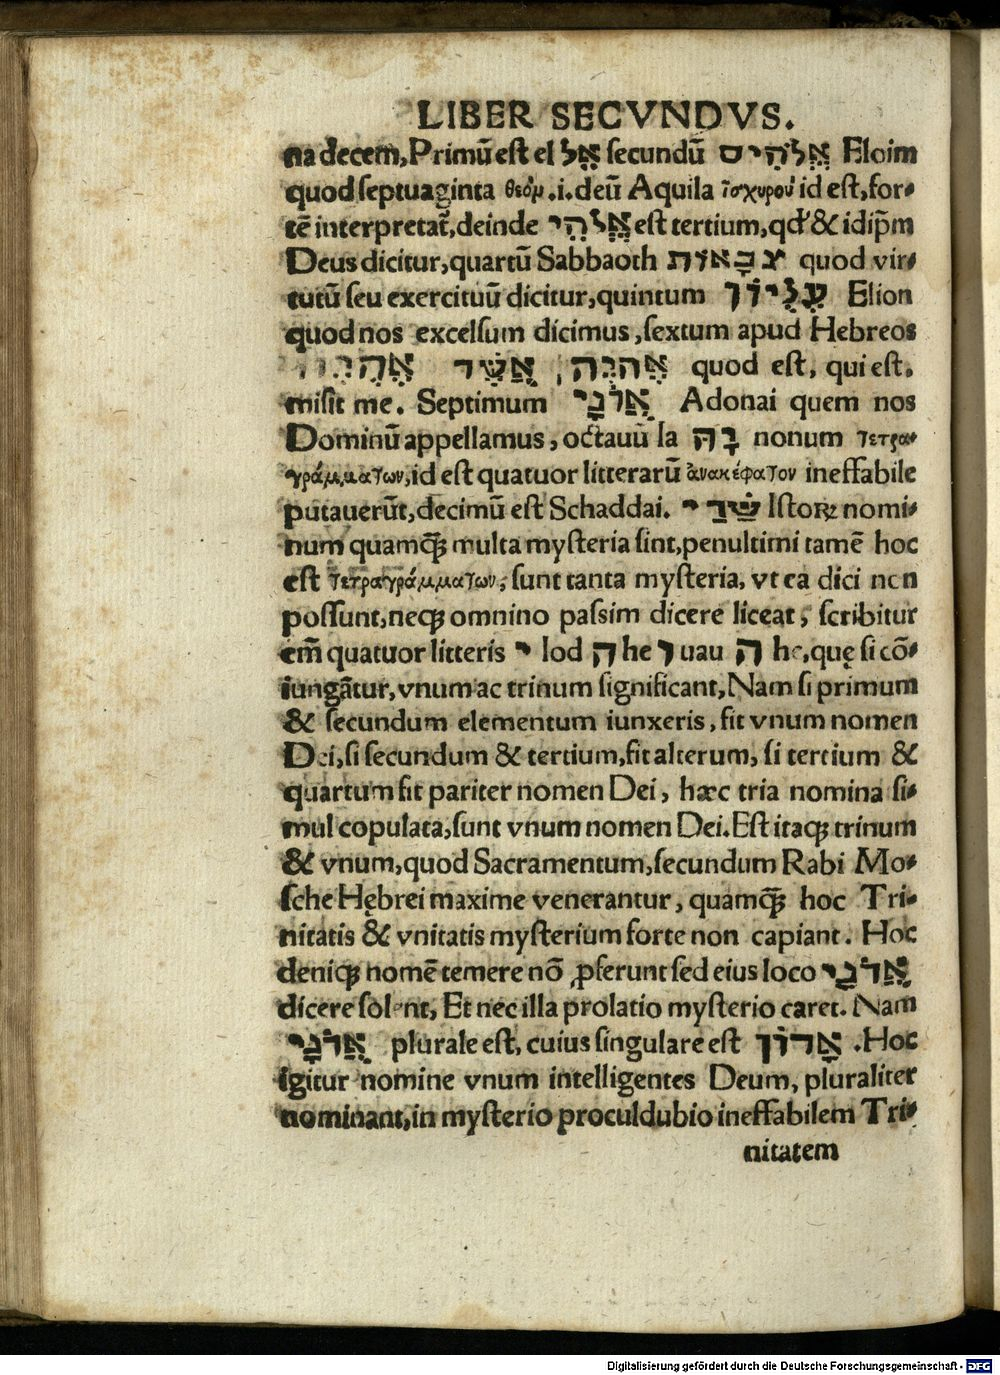 LIBER SECVNDVS.
na decem, Primū est el אֱל secundū אֱלֹהִים Eloim
quod septuaginta θεόμ .i. deū Aquila ἰσχυροὺ id est, for-
tē interpretat̃, deinde אֱלֹהֵי est tertium, qđ & idip̄m
Deus dicitur, quartū Sabbaoth צבָאות quod vir-
tutū seu exercituū dicitur, quintum עֶלְיוֹן Elion
quod nos excelsum dicimus, sextum apud Hebreos
אֶהְיֶה אֲשֶׁר אֶהְיֶה quod est, qui est,
misit me. Septimum אֲדֹנָי Adonai quem nos
Dominū appellamus, octauū Ia יָהּ nonum τετρα-
γράμματων, id est quatuor litterarū ἀνακέφατον ineffabile
putauerūt, decimū est Schaddai. שַׁדַי Istoꝝ nomi-
num quamꝗ̃ multa mysteria sint, penultimi tamē hoc
est τετραγράμματων, sunt tanta mysteria, vt ea dici non
possunt, neqꝫ omnino passim dicere liceat, scribitur
em̄ quatuor litteris י Iod ה he ו uau ה he, quę si cō-
iungãtur, vnum ac trinum significant, Nam si primum
& secundum elementum iunxeris, fit vnum nomen
Dei, si secundum & tertium, fit alterum, si tertium &
quartum fit pariter nomen Dei, hæc tria nomina si-
mul copulata, sunt vnum nomen Dei. Est itaqꝫ trinum
& vnum, quod Sacramentum, secundum Rabi Mo-
sche Hębrei maxime venerantur, quamꝗ̃ hoc Tri-
nitatis & vnitatis mysterium forte non capiant. Hoc
deniqꝫ nomē temere nō ꝓferunt sed eius loco אֲדֹנָי
dicere solent, Et nec illa prolatio mysterio caret. Nam
אֲדֹנָי plurale est, cuius singulare est אָדוֹן . Hoc
igitur nomine vnum intelligentes Deum, pluraliter
nominant, in mysterio proculdubio ineffabilem Tri-
nitatem
Digitalisierung gefördert durch die Deutsche Forschungsgemeinschaft - DFG